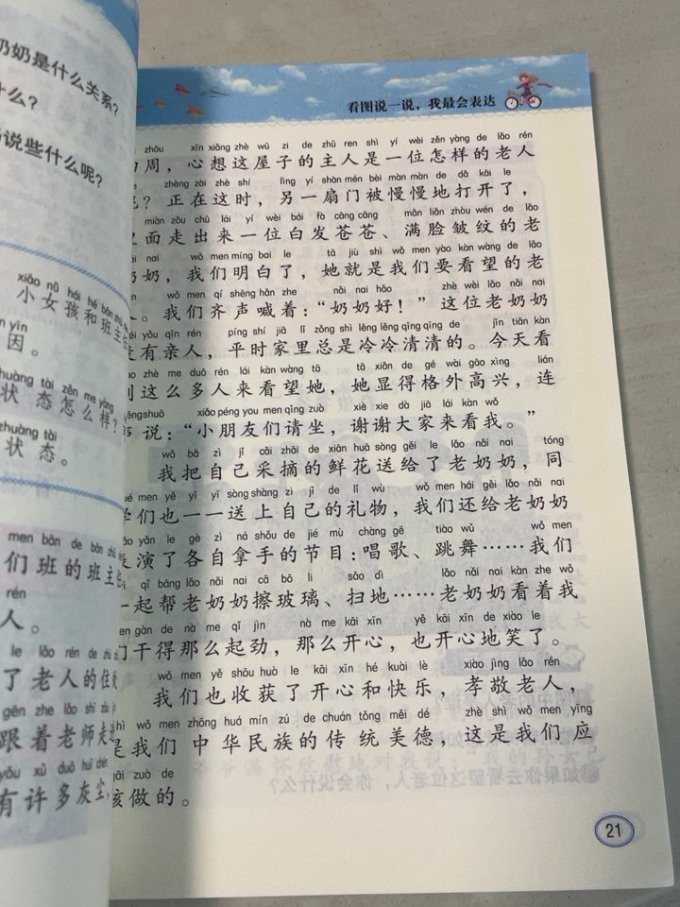 奶奶是什么关系?
什么?
说些什么呢?
xiǎo nǚ hái hé bān zhǔ
小女孩和班主
yīn
因。
zhuàng tài zěn me yàng
状态怎么样?
zhuàng tài
状态。
men bān de bān zhǔ
们班的班主
rén
人。
le lǎo rén de zhù
了老人的住
gēn zhe lǎo shī
跟着老师
yǒu xǔ duō huī chén
有许多灰尘,
看图说一说,我最会表达
zhōu xīn xiǎng zhè wū zi de zhǔ rén shì yí wèi zěn yàng de lǎo rén
周,心想这屋子的主人是一位怎样的老人
zhèng zài zhè shí lìng yí shàn mén bèi màn màn de dǎ kāi le
?正在这时,另一扇门被慢慢地打开了,
miàn zǒu chū lái yí wèi bái fà cāng cāng mǎn liǎn zhòu wén de lǎo
面走出来一位白发苍苍、满脸皱纹的老
nai wǒ men míng bai le tā jiù shì wǒ men yào kàn wàng de lǎo
奶,我们明白了,她就是我们要看望的老
wǒ men qí shēng hǎn zhe nǎi nai hǎo zhè wèi lǎo nǎi nai
。我们齐声喊着:“奶奶好!”这位老奶奶
yǒu qīn rén píng shí jiā lǐ zǒng shì lěng lěng qīng qīng de jīn tiān kàn
有亲人,平时家里总是冷冷清清的。今天看
zhè me duō rén lái kàn wàng tā tā xiǎn de gé wài gāo xìng lián
到这么多人来看望她,她显得格外高兴,连
shuō xiǎo péng you men qǐng zuò xiè xie dà jiā lái kàn wǒ
说:“小朋友们请坐,谢谢大家来看我。”
wǒ bǎ zì jǐ cǎi zhāi de xiān huā sòng gěi le lǎo nǎi nai tóng
我把自己采摘的鲜花送给了老奶奶,同
men yě yī yī sòng shàng zì jǐ de lǐ wù wǒ men hái gěi lǎo nǎi nai
学们也一一送上自己的礼物,我们还给老奶奶
yǎn le gè zì ná shǒu de jié mù chàng gē tiào wǔ wǒ men
演了各自拿手的节目:唱歌、跳舞……我们
qǐ bāng lǎo nǎi nai cā bō li sǎo dì lǎo nǎi nai kàn zhe wǒ
一起帮老奶奶擦玻璃、扫地……老奶奶看着我
men gàn de nà me qǐ jìn nà me kāi xīn yě kāi xīn de xiào le
们干得那么起劲,那么开心,也开心地笑了。
wǒ men yě shōu huò le kāi xīn hé kuài lè xiào jìng lǎo rén
我们也收获了开心和快乐,孝敬老人,
shì wǒ men zhōng huá mín zú de chuán tǒng měi dé zhè shì wǒ men yīng
是我们中华民族的传统美德,这是我们应
gāi zuò de
该做的。
21